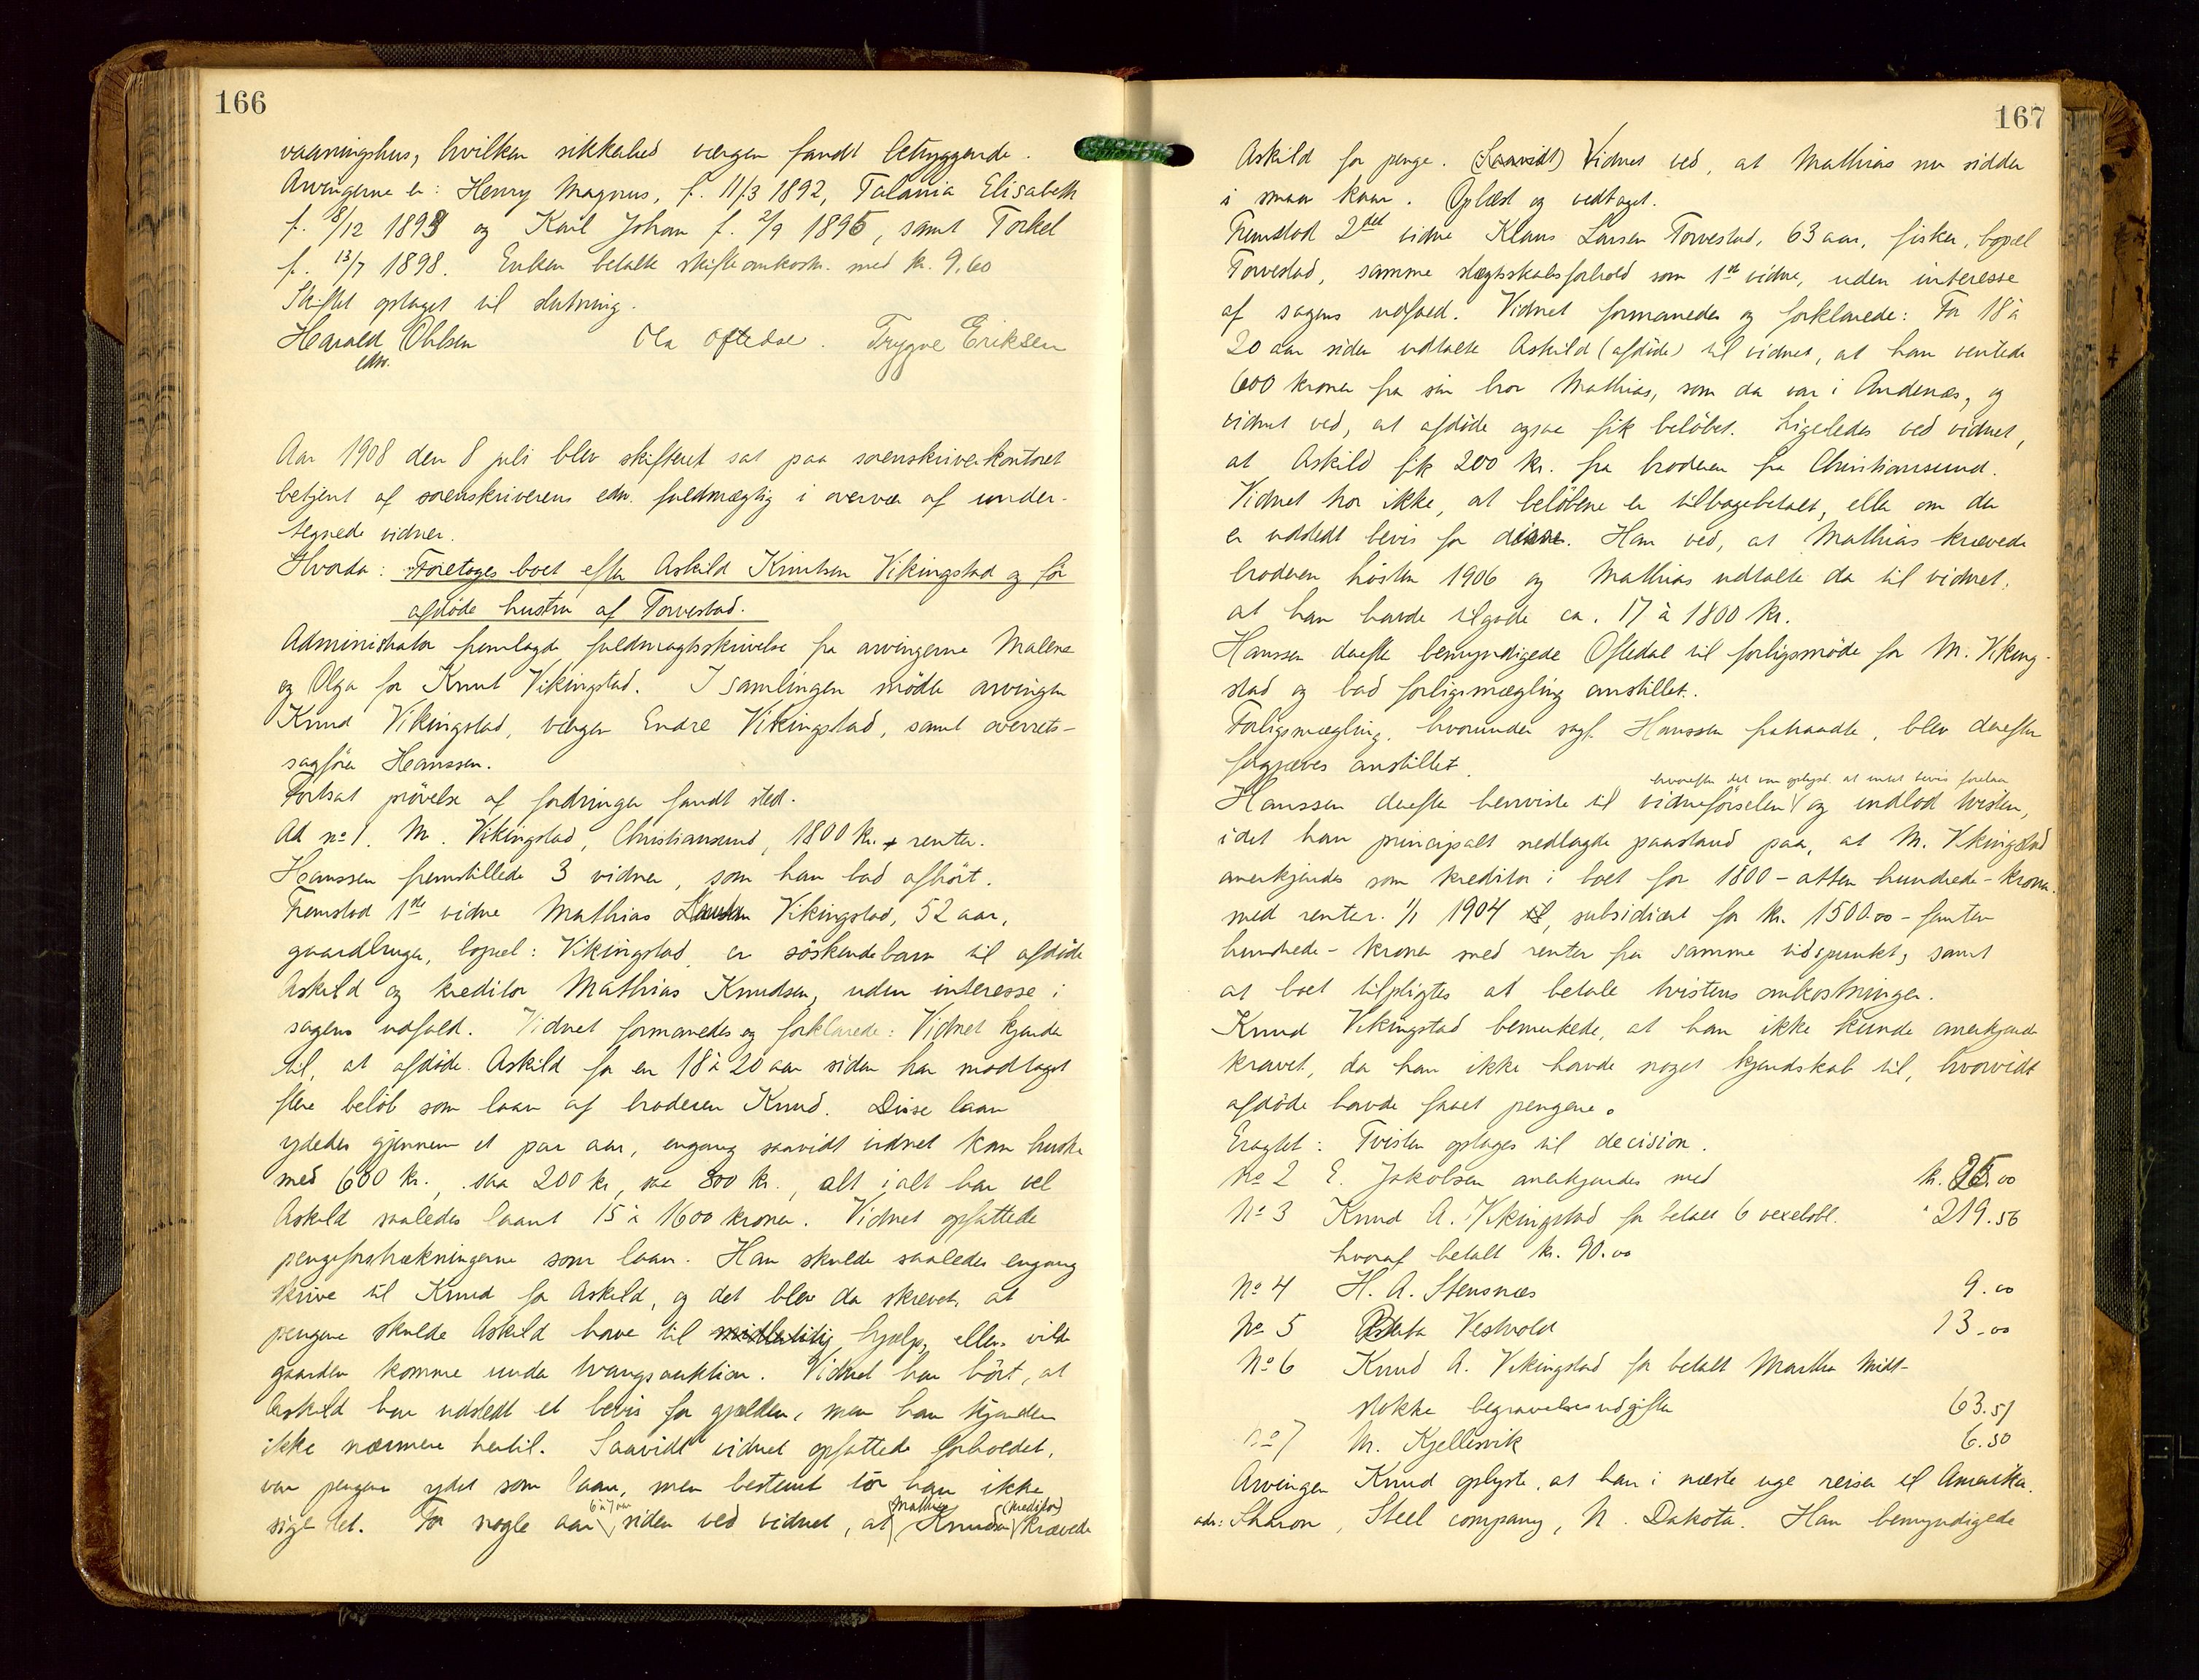 166
vaaningshus, hvilken sikkerhed vergen fandt betryggende.
Arvingerne er: Henry Magnus, f. 11/3 1892, Talania Elisabeth
f. 8/12 1893 og Karl Johan f. 2/9 1895, samt Torkel
f. 13/7 1898. Enken betalte skifteomkostn. med kr. 9.60
Skiftet optaget til slutning.
Harald Ohlsen Ola Oftedal. Trygve Eriksen
edsv.
Aar 1908 den 8 juli blev skifteret sat paa sorenskriverkontoret
betjent af sorenskriverens edsv. fuldmægtig i overvær af under-
tegnede vidner.
Hvorda: Foretoges boet efter Askild Knutsen Vikingstad og før
afdøde hustru af Torvestad.
Administrator fremlagde fuldmagtsskrivelse fra arvingerne Malene
og Olga for Knut Vikingstad. I samlingen mødte arvingen
Knud Vikingstad, vergen Endre Vikingstad, samt overrets-
sagfører Hanssen.
Fortsat prøvelse af fordringer fandt sted.
Ad no 1. M. Vikingstad, Christiansund, 1800 kr. + renter.
Hanssen fremstillede 3 vidner, som han bad afhørt.
Fremstod 1ste vidne Mathias Vikingstad, 52 aar,
gaardbruger, bopæl: Vikingstad, er söskendebarn til afdöde
Askild og kreditor Mathias Knudsen, uden interesse i
sagens udfald. Vidnet formanedes og forklarede: Vidnet kjender
til, at afdöde Askild for en 18 à 20 aar siden har modtaget
flere belöb som laan af broderen Knud. Disse laan
ydedes gjennem et par aar, engang saavidt vidnet kan huske
med 600 kr., saa 200 kr, saa 800 kr., alt ialt har vel
Askild saaledes laant 15 à 1600 kroner. Vidnet opfattede
pengeforstrækningerne som laan. Han skulde saaledes engang
skrive til Knud for Askild, og det blev da skrevet, at
pengene skulde Askild have til midlertidig hjælp, ellers vilde
gaarden komme under tvangsauktion. Vidnet har hört, at
Askild har udstedt et bevis for gjælden, men han kjender
ikke nærmere hertil. Saavidt vidnet opfattede forholdet,
var pengene ydet som laan, men bestemt tör han ikke
6 à 7 aar Mathias (kreditor)
sige det. For nogle aar siden ved vidnet, at Knudsen krævede
167
Askild for penge. (Saavidt) Vidnet ved, at Mathias nu sidder
i smaa kaar. Oplæst og vedtaget.
Fremstod 2det vidne Klaus Larsen Torvestad, 63 aar, fisker, bopæl
Torvestad, samme slægtsskabsforhold som 1ste vidne, uden interesse
af sagens udfald. Vidnet formanedes og forklarede: For 18 à
20 aar siden udtalte Askild (afdöde) til vidnet, at han ventede
600 kroner fra sin bror Mathias, som da var i Andenæs, og
vidnet ved, at afdöde ogsaa fik belöbet. Ligeledes ved vidnet,
at Askild fik 200 kr. fra broderen fra Christiansund.
Vidnet tror ikke, at belöbene er tilbagebetalt, eller om der
er udstedt bevis for disse. Han ved, at Mathias krævede
broderen hösten 1906 og Mathias udtalte da til vidnet,
at han havde tilgode ca. 17 à 1800 kr.
Hanssen derefter bemyndigede Oftedal til forligsmöde for M. Viking-
stad og bad forligsmægling anstillet.
Forligsmægling, hvorunder sagf. Hanssen fratraadte, blev derefter
forgjæves anstillet.
hvorefter det var oplyst, at intet bevis forelaa
Hanssen derefter henviste til vidneförselen og indlod tvisten,
idet han principalt nedlagde paastand paa, at M. Vikingstad
anerkjendes som kreditor i boet for 1800 - atten hundrede - kroner
med renter 1/1 1904, subsidiært for kr. 1500.00 - femten
hundrede - kroner med renter fra samme tidspunkt, samt
at boet tilpligtes at betale tvistens omkostninger.
Knud Vikingstad bemerkede, at han ikke kunde anerkjende
kravet, da han ikke havde noget kjendskab til, hvorvidt
afdöde havde faaet pengene.
Eragtet: Tvisten optages til decision.
No 2 E. Jakobsen anerkjendes med kr. 25.00
No 3 Knud A. Vikingstad for betalt 6 vexelobl. " 219.56
hvoraf betalt kr. 90.00
No 4 H. A. Stensnæs 9.00
No 5 Vestvold 13.00
No 6 Knud A. Vikingstad for betalt Martha Midt-
stokke begravelsesudgifter 63.51
No 7 M. Kjellesvik 6.50
Arvingen Knud oplyste, at han i næste uge reiser til Amerika.
adr: Sharon, Steel company, N. Dakota. Han bemyndigede